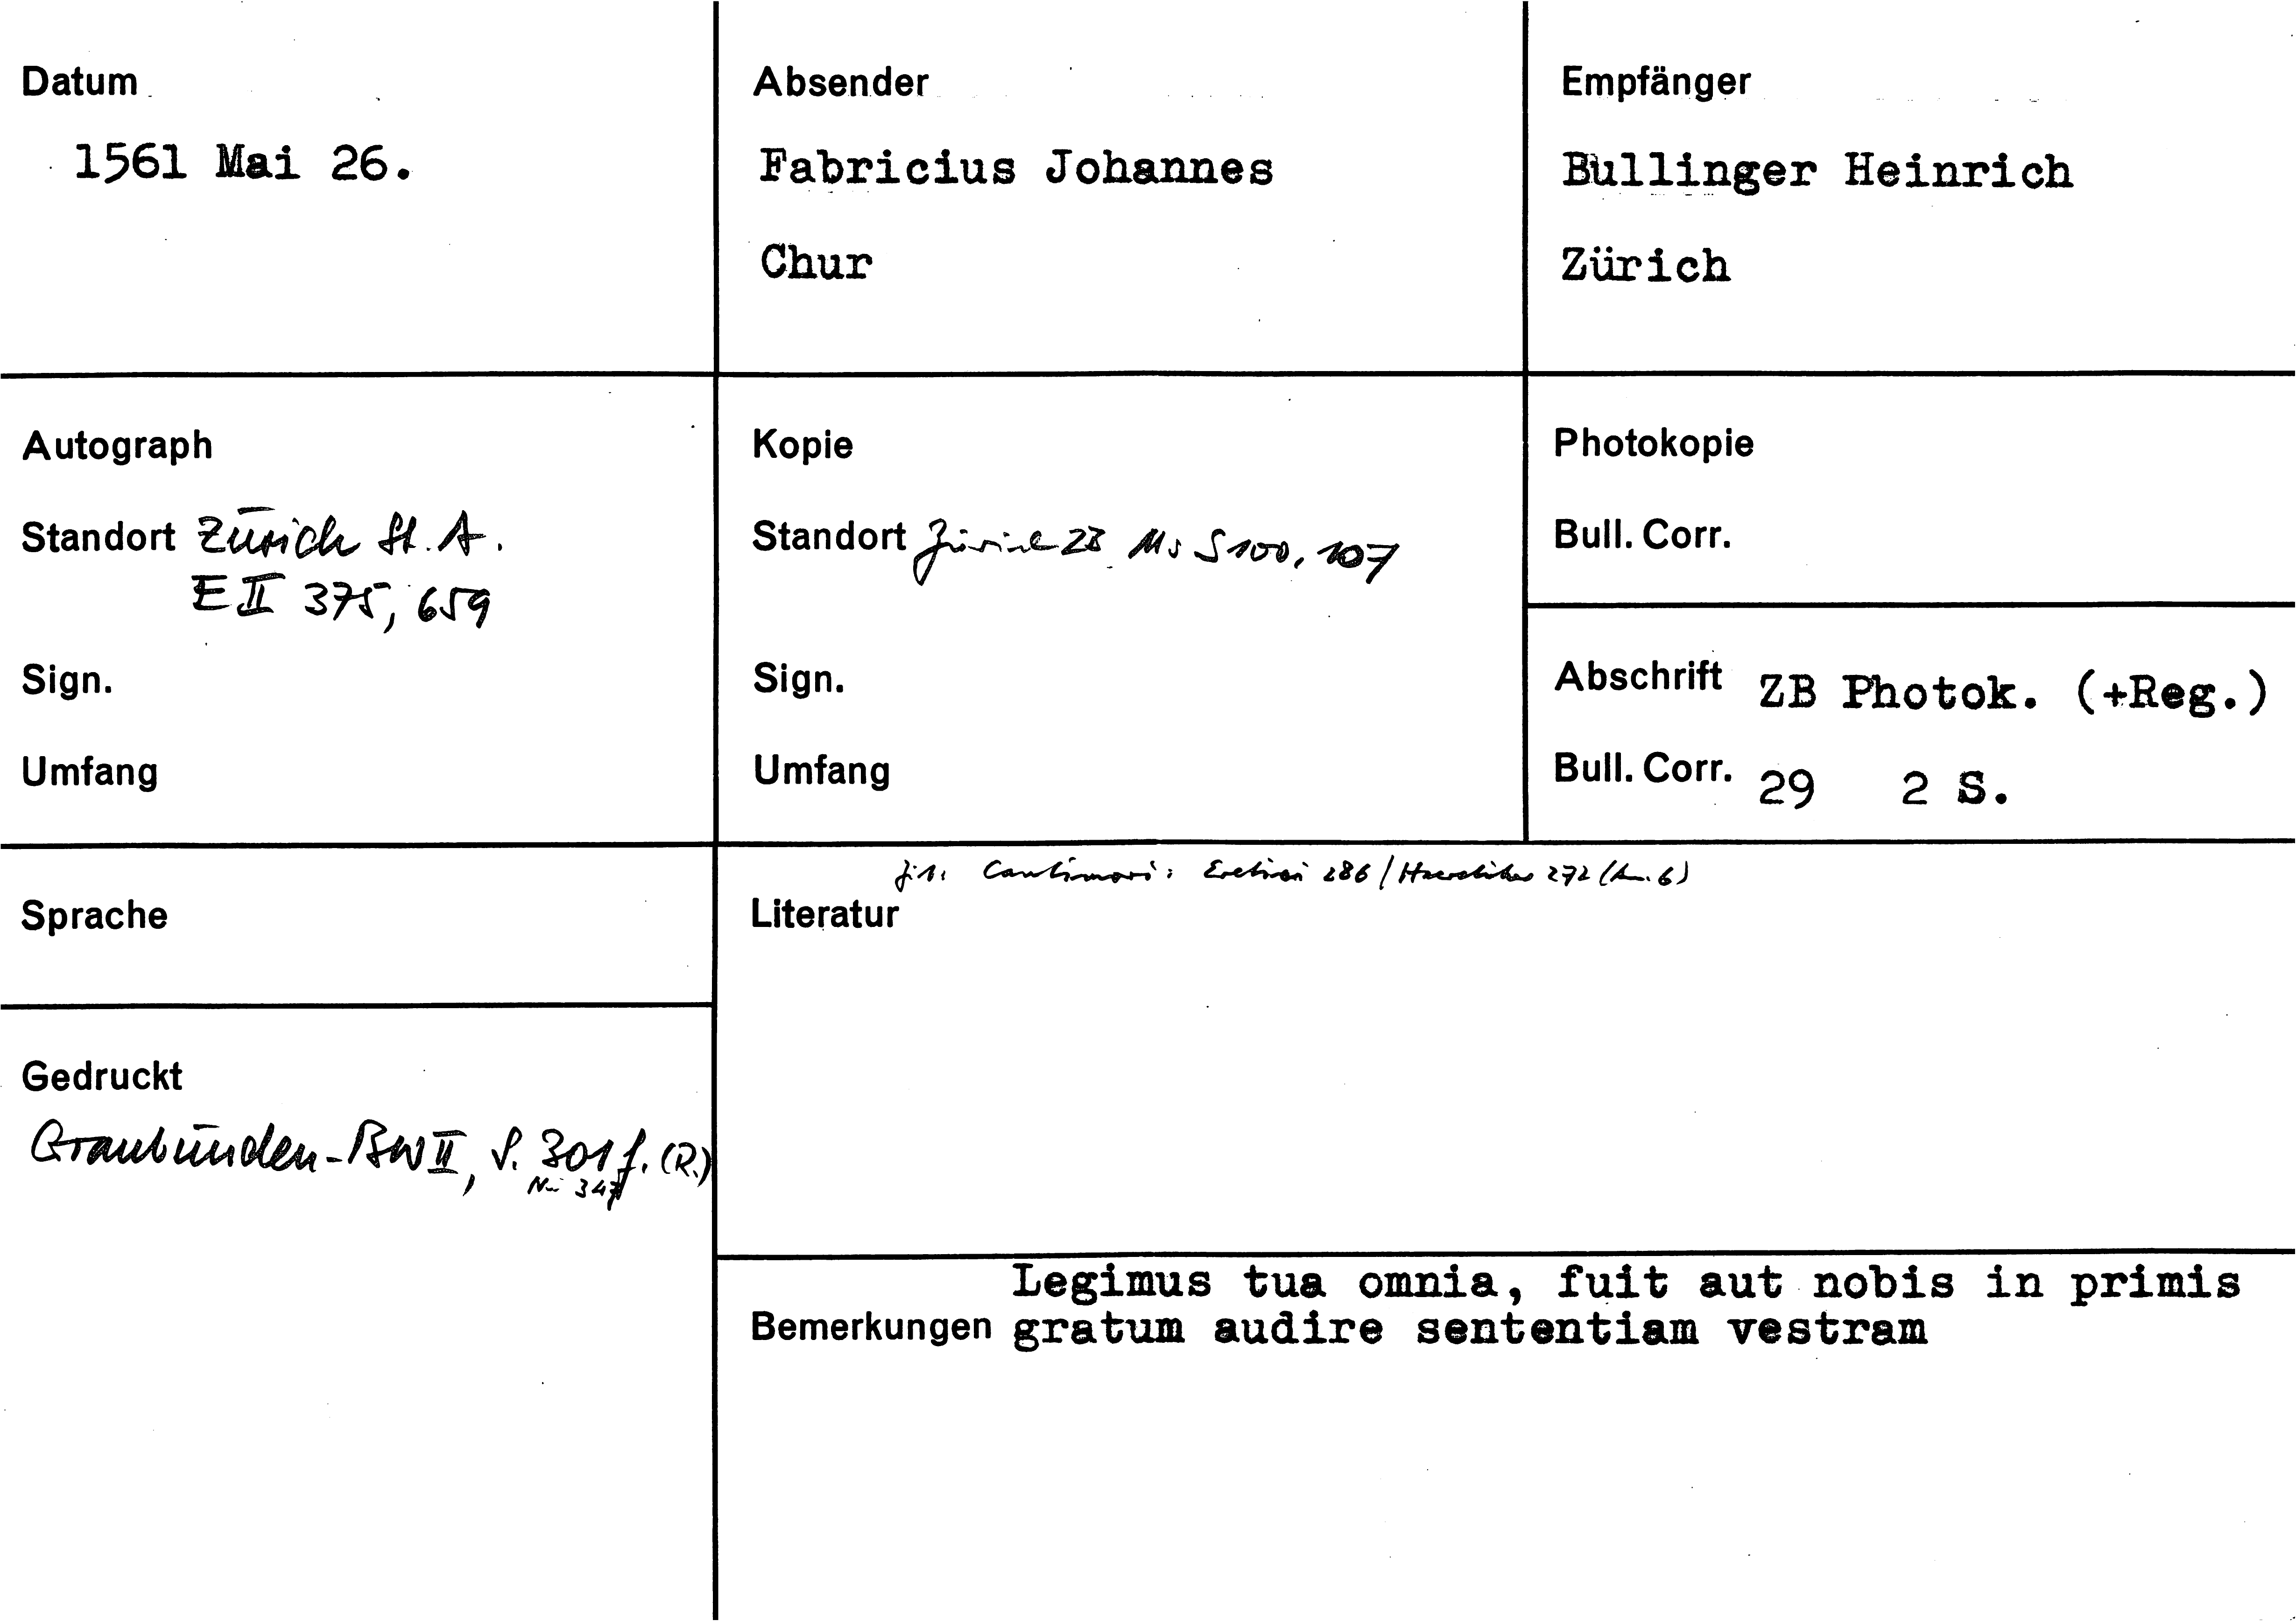 Datum
1561 Mai 26.
Absender
Fabricius Johannes
Chur
Empfänger
Bullinger Heinrich
Zürich
Autograph
Standort Zürich St. A.
E II 375, 659
Sign.
Umfang
Kopie
Standort Zürich ZB Ms S 100, 107
Sign.
Umfang
Photokopie
Bull. Corr.
Abschrift ZB Photok. (+Reg.)
Bull. Corr. 29 2 S.
Sprache
Gedruckt
Graubünden-BW II, S. 301 f. (R.)
Nr. 347
Zit. Cantimori: Eretici 286 / Haeretiker 272 (An. 6)
Literatur
Legimus tua omnia, fuit aut nobis in primis
Bemerkungen gratum audire sententiam vestram